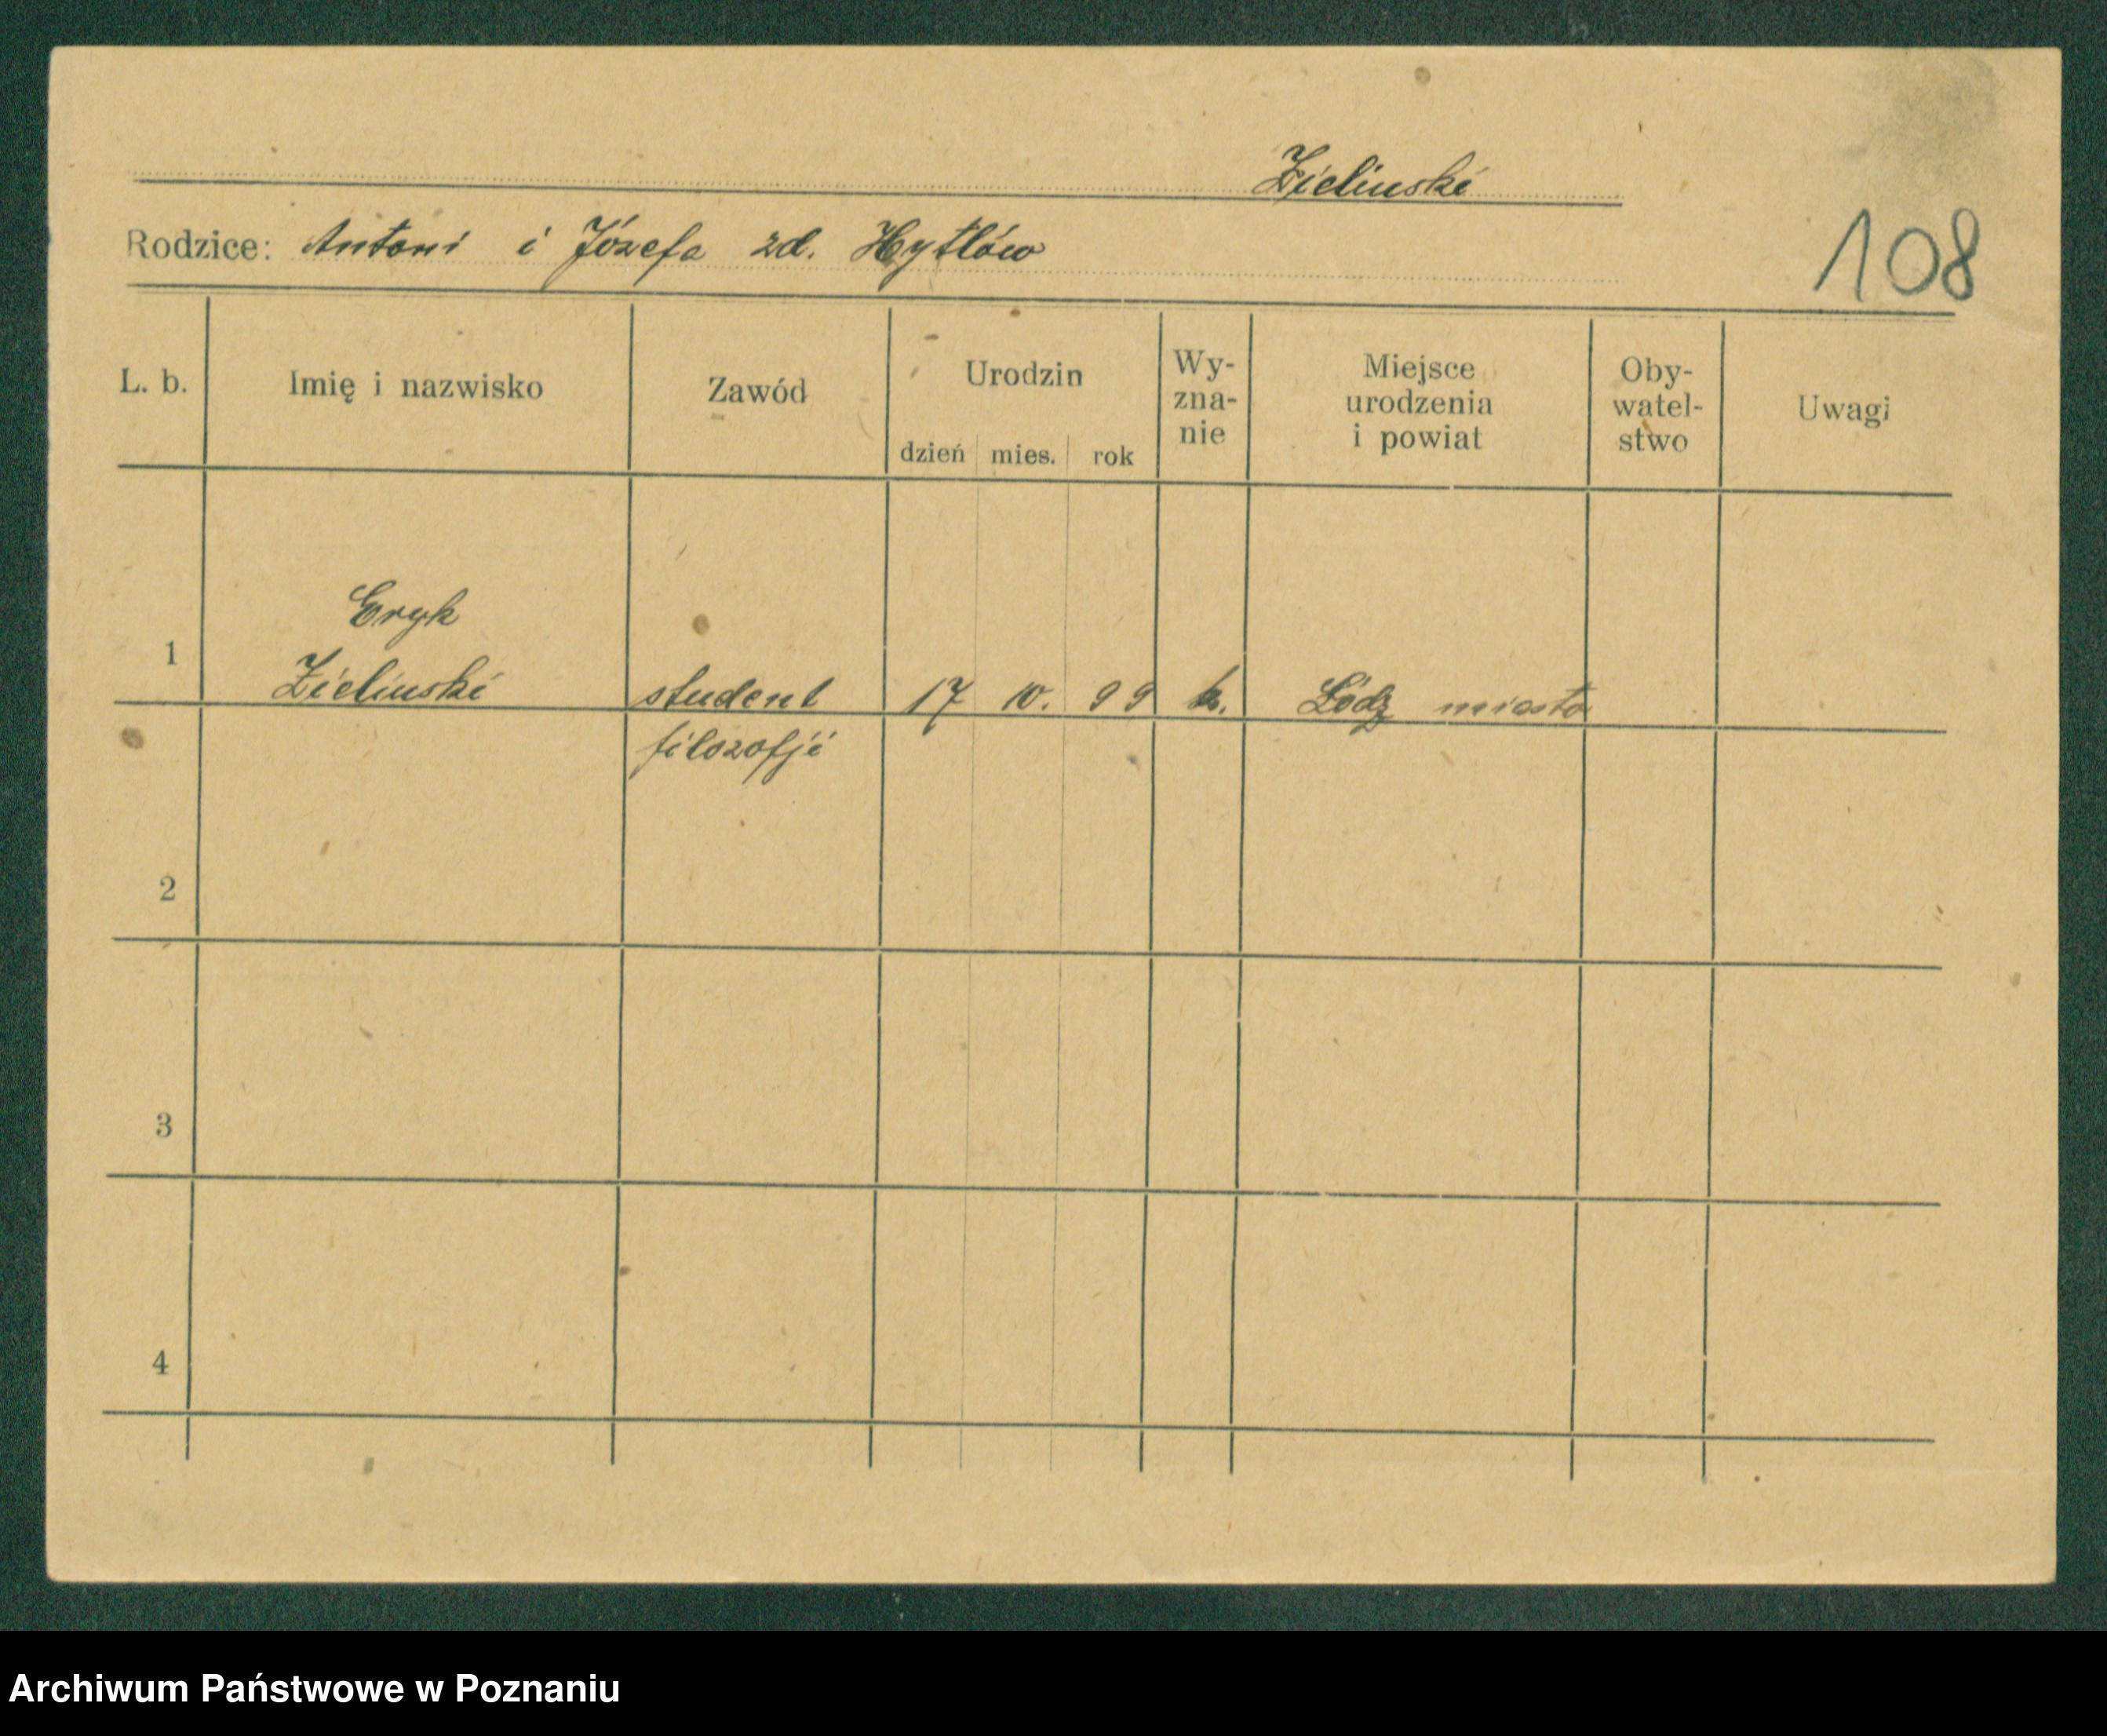 Zielinski
Rodzice: Antoni i Józefa zd. Hytlów
108
L. b. Imię i nazwisko Zawód Urodzin dzień mies. rok Wy-zna-nie Miejsce urodzenia i powiat Oby-watel-stwo Uwagi
Eryk
1 Zielinski student 17 10. 99 k. Łódz miasto
filozofji
2
3
4
Archiwum Państwowe w Poznaniu